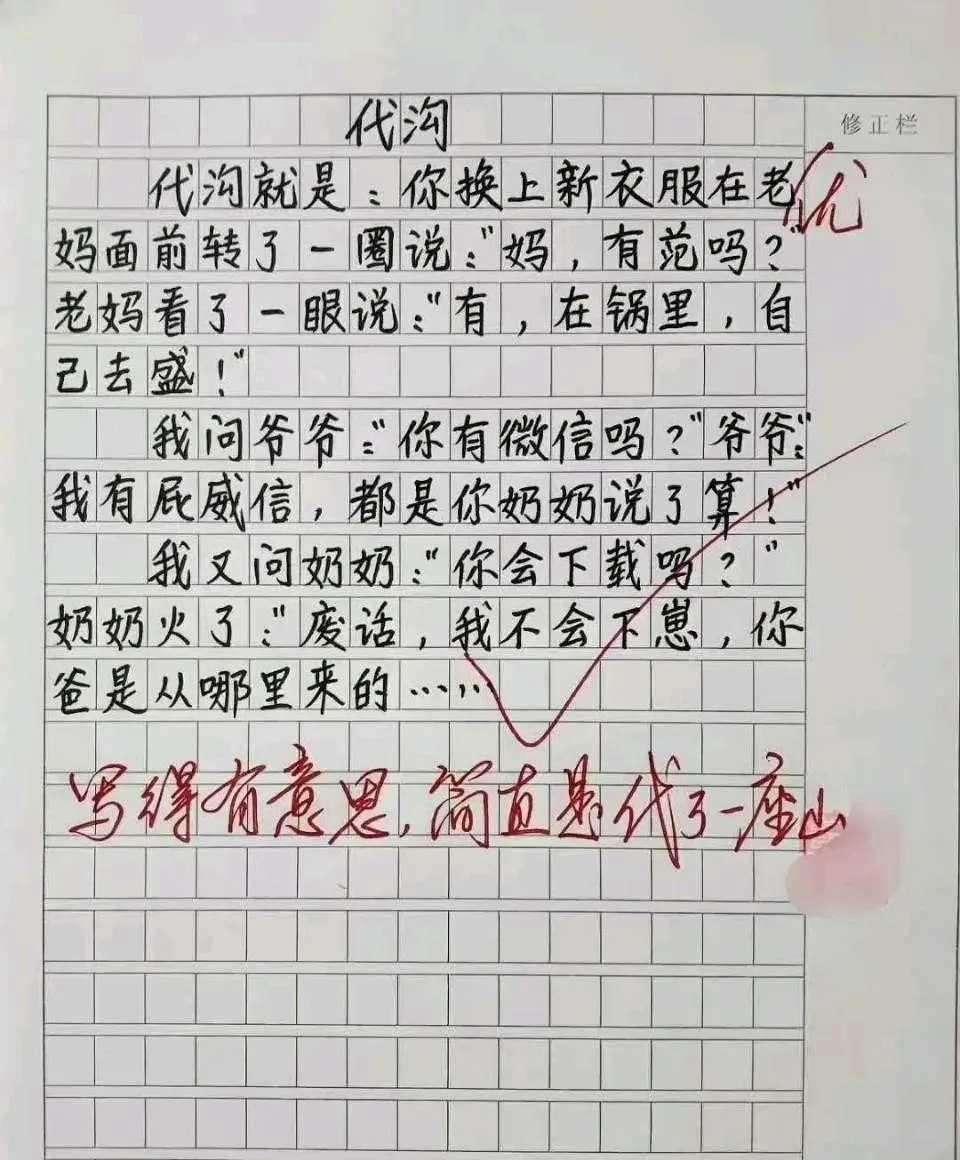 代沟
修正栏
代沟就是：你换上新衣服在老
优
妈面前转了一圈说："妈，有范吗？"
老妈看了一眼说："有，在锅里，自
己去盛！"
我问爷爷："你有微信吗？"爷爷："
我有屁威信，都是你奶奶说了算！"
我又问奶奶："你会下载吗？"
奶奶火了："废话，我不会下崽，你
爸是从哪里来的……
写得有意思，简直是代了一座山